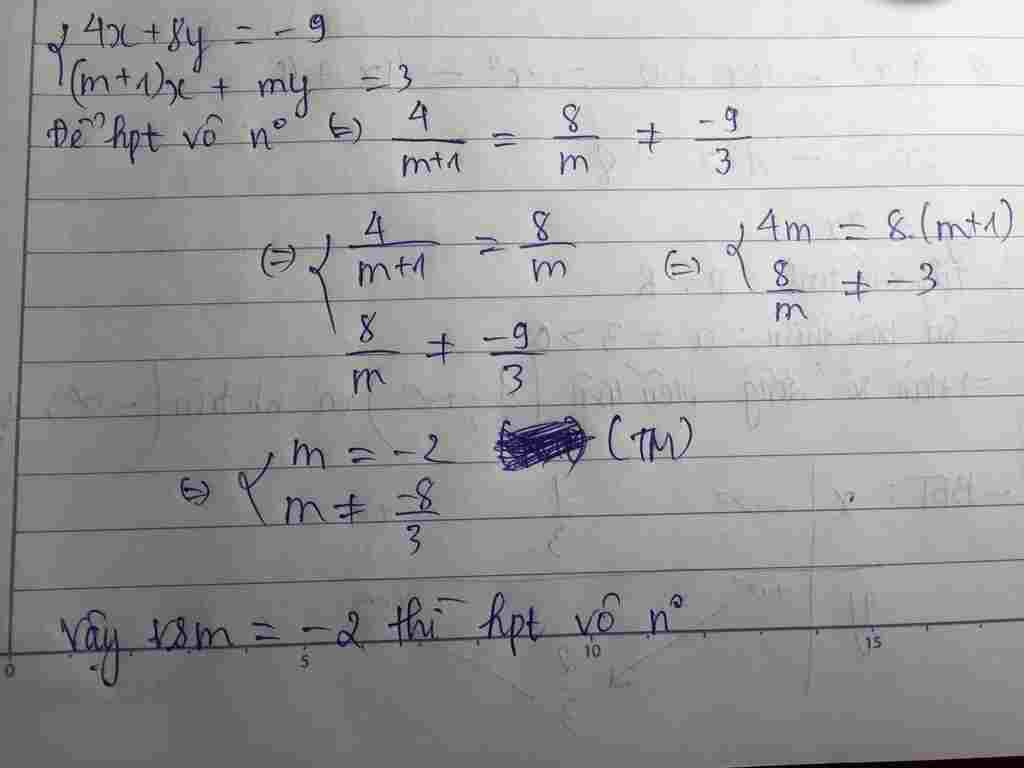 { 4x + 8y = -9
(m+1)x + my = 3
Để hpt vô n° (=) 4/(m+1) = 8/m ≠ -9/3
(=) { 4/(m+1) = 8/m (=) { 4m = 8.(m+1)
8/m ≠ -9/3 8/m ≠ -3
(=) { m = -2 (TM)
m ≠ -8/3
Vậy với m = -2 thì hpt vô n°
0 5 10 15